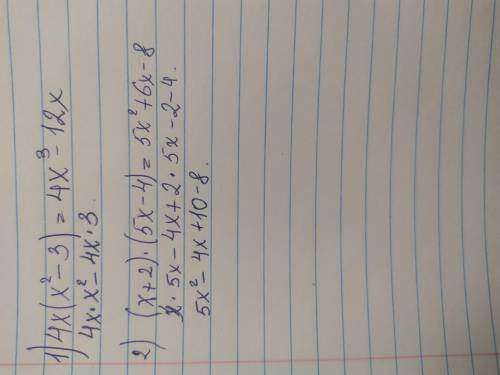 1) 4x(x²-3) = 4x³-12x
4x·x²-4x·3.
2) (x+2)·(5x-4)=5x²+6x-8
x·5x-4x+2·5x-2-4.
5x²-4x+10-8.